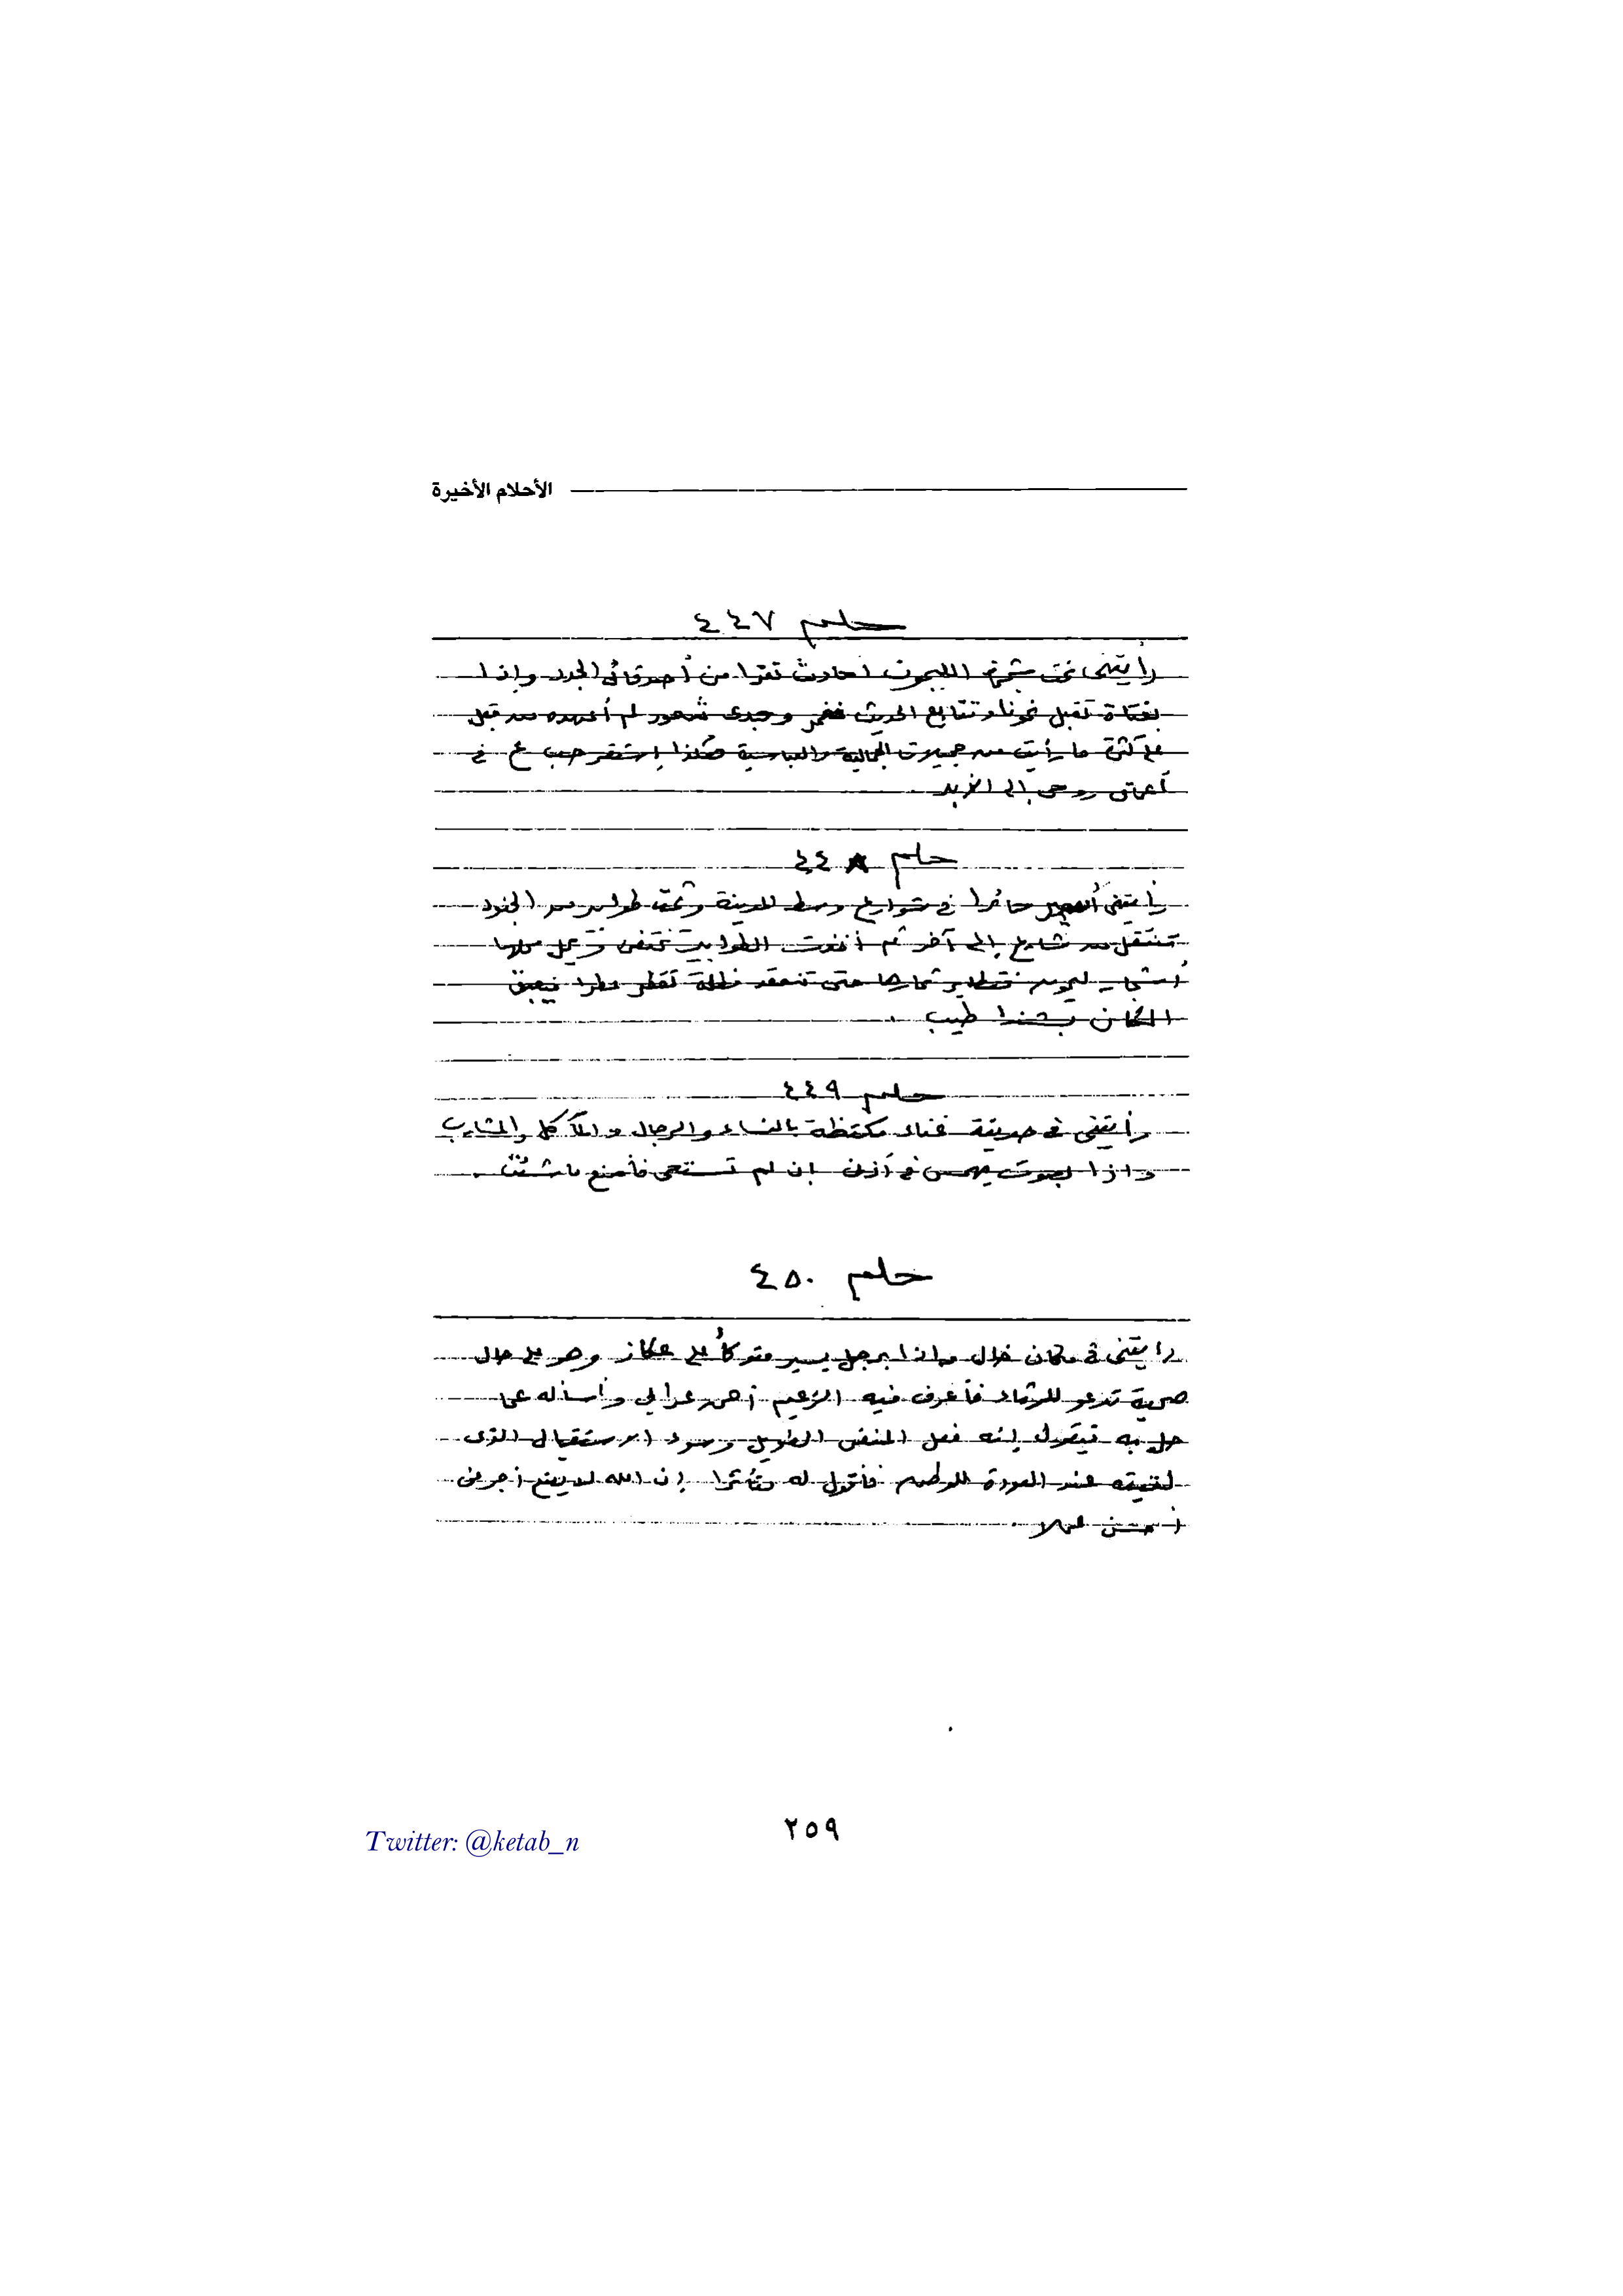 الأحلام الأخيرة
حلم ٤٤٧
رأيتنى تحت شجرة الليمون أحادث نفرا من أصدقائى الجدد وإذا
بفتاة تقبل نحونا وتتابع الحديث فغمر وجدى شعور لم أعهده من قبل
على كثرة ما رأيت من جميلات الجمالية والعباسية هكذا إستقر حب ع فى
أعماق روحى إلى الأبد
حلم ٤٤
رأيتنى أسير حائرا فى شوارع وسط المدينة وثمة طوابير من الجنود
تنتقل من شارع إلى آخر ثم أخذت الطوابير تختفى وتحل محلها
أشجار ليمون فتطاير ثمارها حتى تنعقد مظلة تقطر عطرا فيعبق
المكان بشذا طيب .
حلم ٤٤٩
رأيتنى فى حديقة غناء مكتظة بالنساء والرجال والمآكل والمشارب
وإذا بصوت يهمس فى أذنى إن لم تستحى فأصنع ما شئت .
حلم ٤٥٠
رأيتنى فى مكان خال وإذا برجل يسير متوكأ على عكاز وهو على حال
صحية تدعو للرثاء فأعرف فيه الزعيم أحمد عرابى وأسأله عما
حل به فيقول إنه فعل المنفى الطويل وسوء الاستقبال الذى
لقيته عند العودة للوطن فأقول له متأثرا إن الله لا يضيع أجر من
أحسن عملا .
٢٥٩
Twitter: @ketab_n